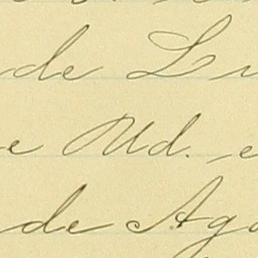 de Lu
e Ud. e
de Ago